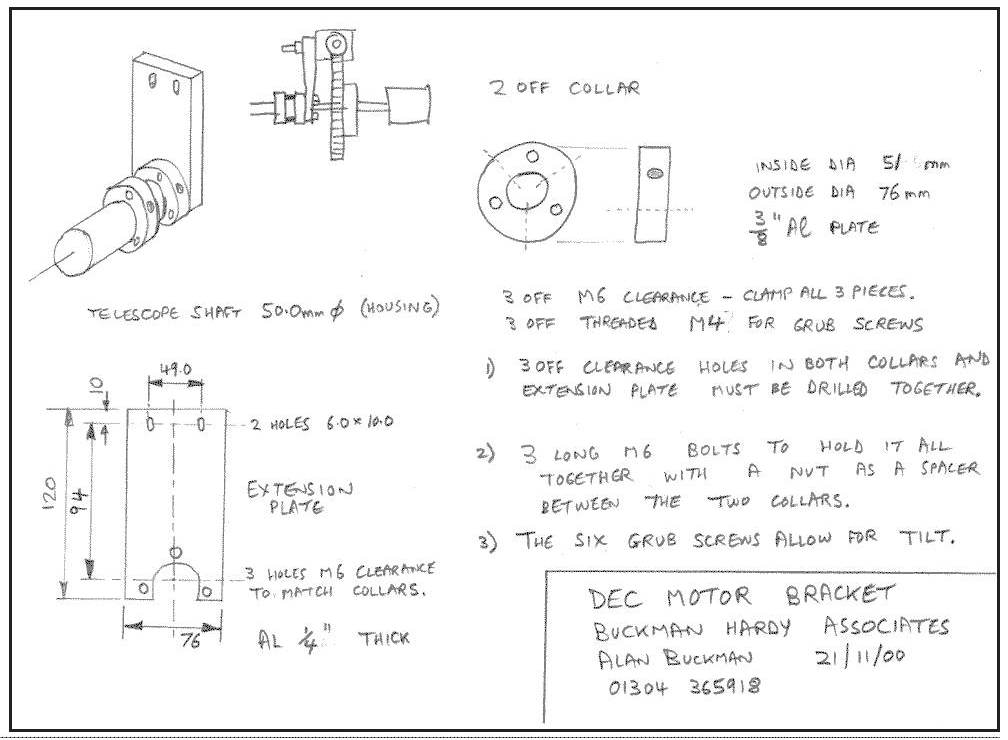 2 OFF COLLAR
INSIDE DIA 51 mm
OUTSIDE DIA 76 mm
3/8" Al PLATE
TELESCOPE SHAFT 50.0mm ϕ (HOUSING)
3 OFF M6 CLEARANCE - CLAMP ALL 3 PIECES.
3 OFF THREADED M4 FOR GRUB SCREWS
1) 3 OFF CLEARANCE HOLES IN BOTH COLLARS AND
EXTENSION PLATE MUST BE DRILLED TOGETHER.
2) 3 LONG M6 BOLTS TO HOLD IT ALL
TOGETHER WITH A NUT AS A SPACER
BETWEEN THE TWO COLLARS.
3) THE SIX GRUB SCREWS ALLOW FOR TILT.
49.0
10
2 HOLES 6.0 x 10.0
120
94
EXTENSION
PLATE
3 HOLES M6 CLEARANCE
TO MATCH COLLARS.
76
AL 1/4" THICK
DEC MOTOR BRACKET
BUCKMAN HARDY ASSOCIATES
ALAN BUCKMAN 21/11/00
01304 365918